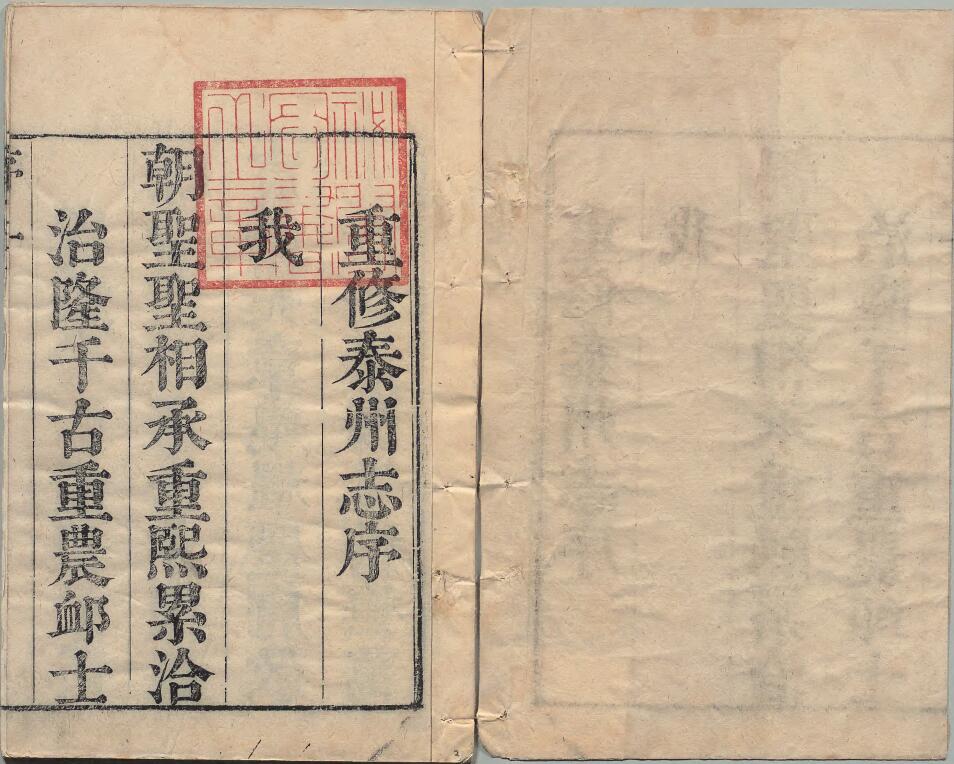 重修泰州志序
我
朝聖聖相承重熙累洽
治隆千古重農卹士